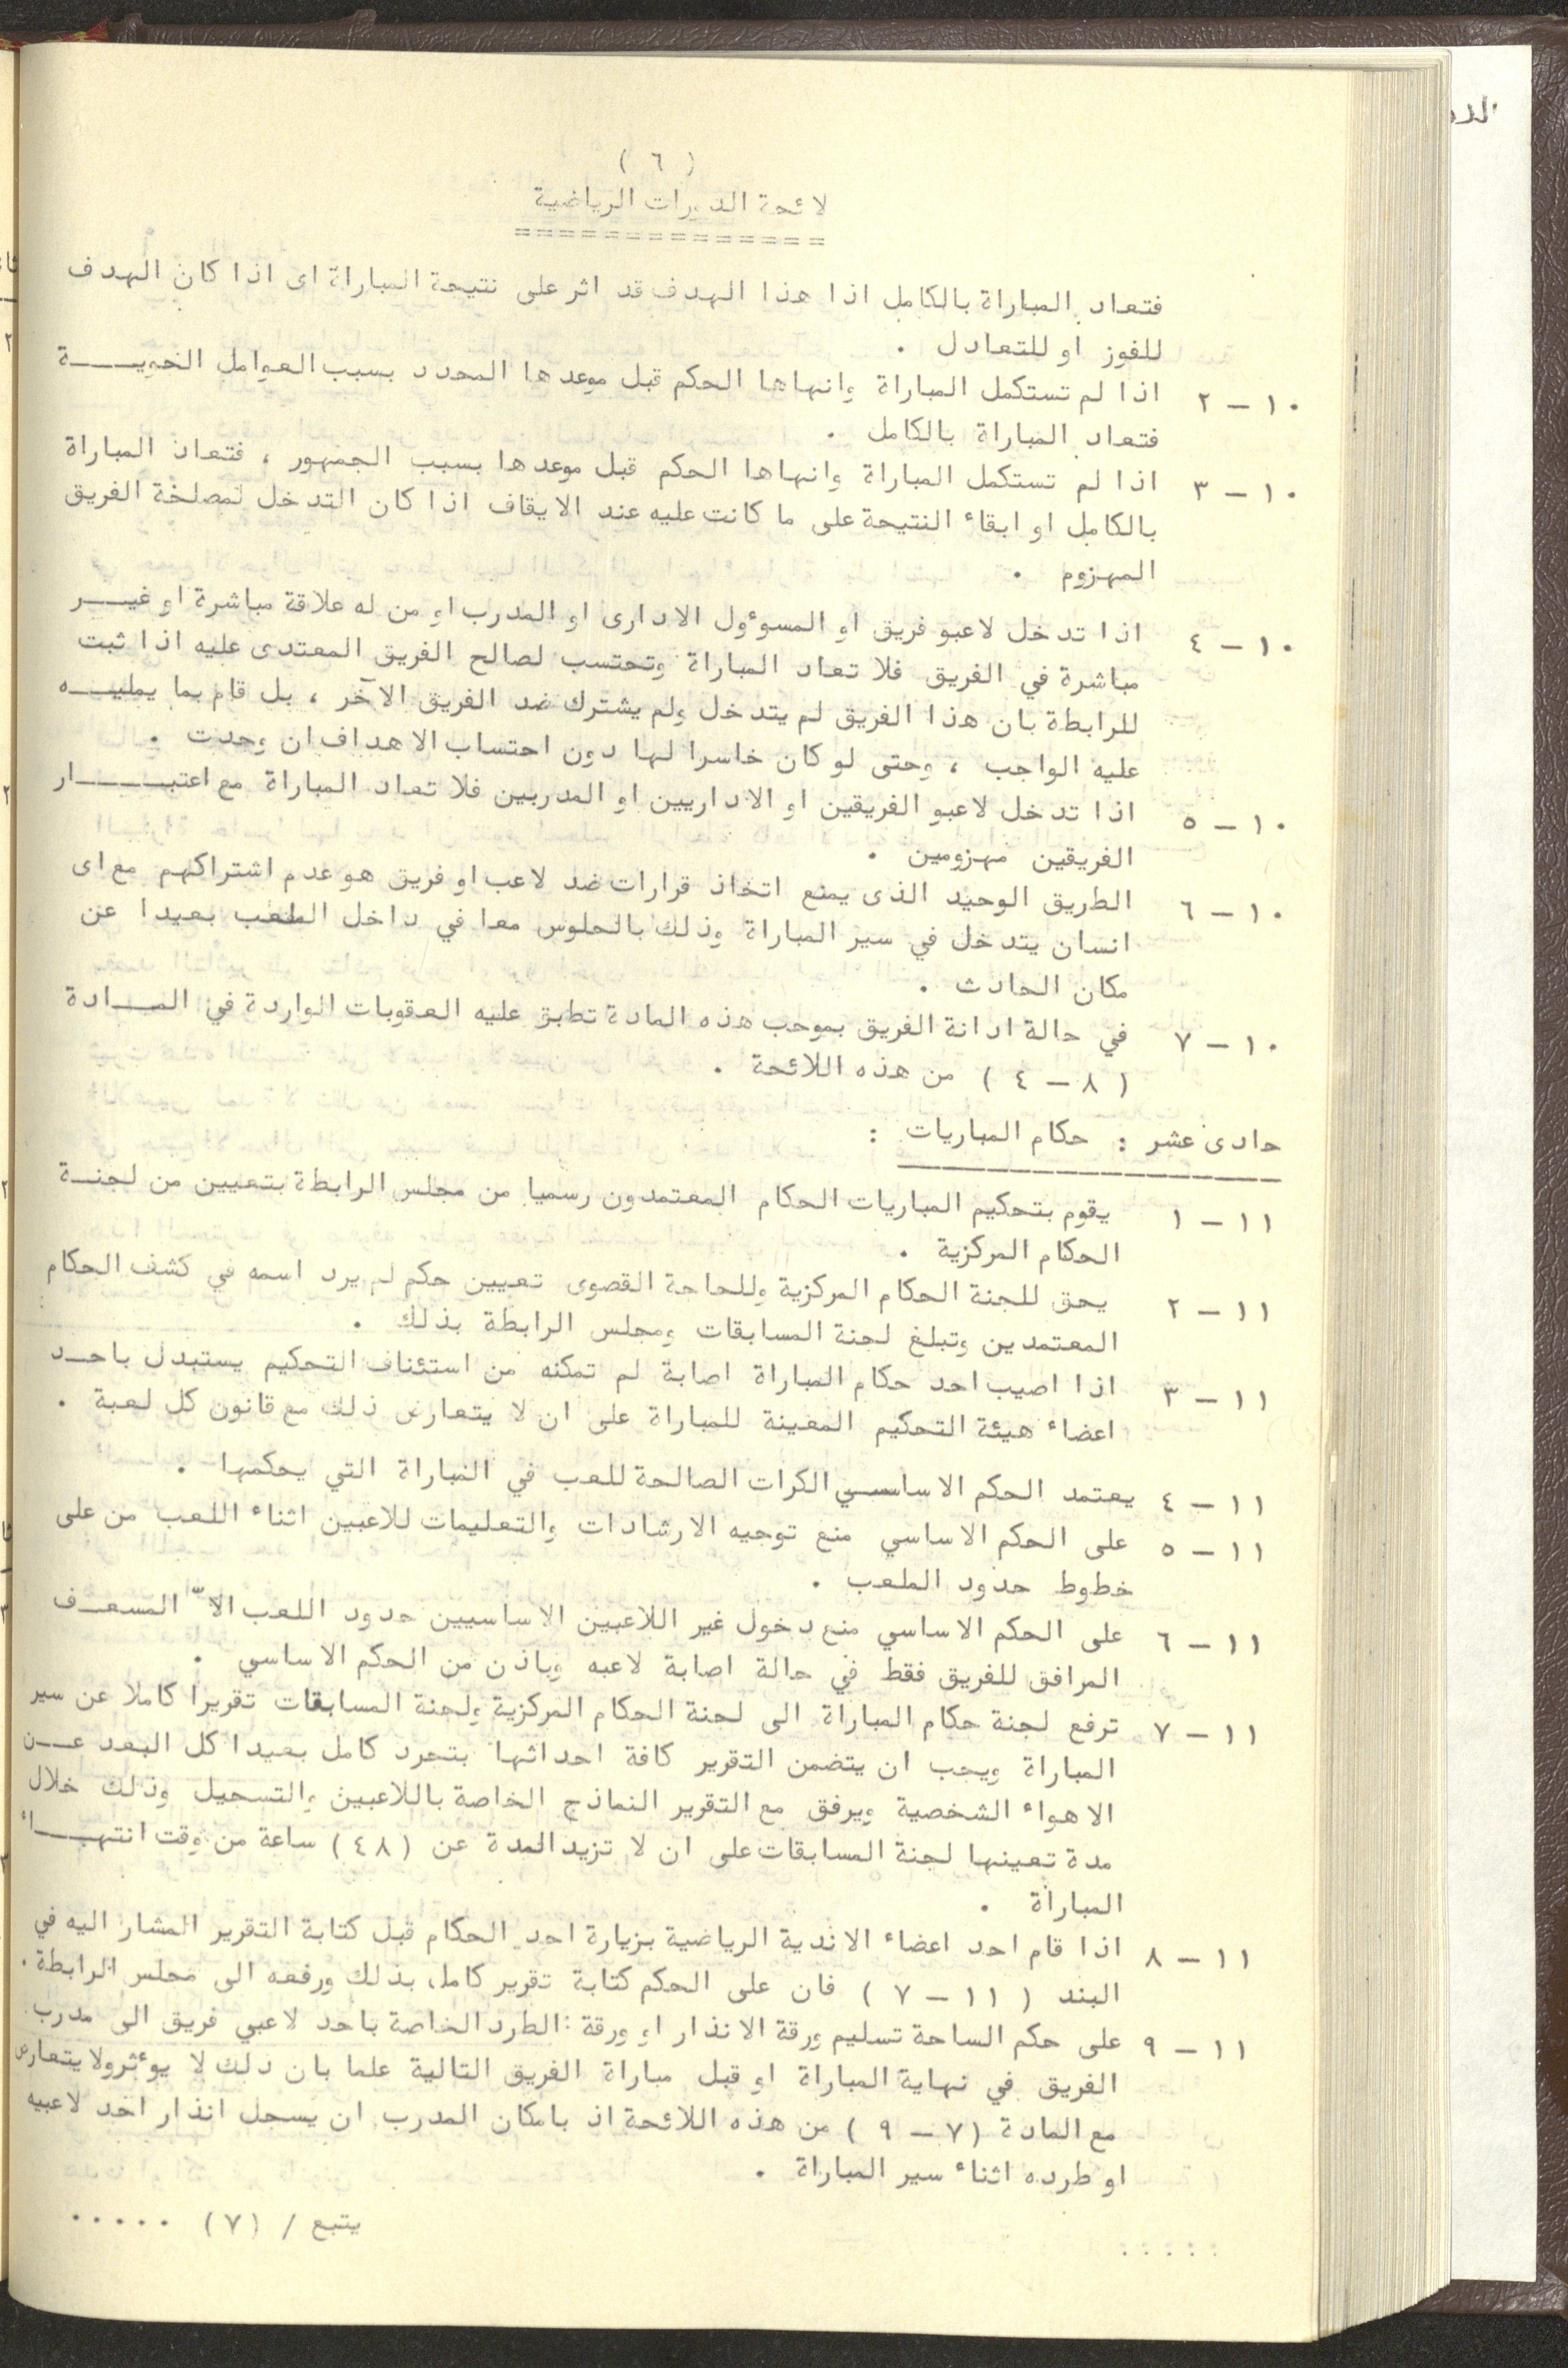 ( ٦ )
لائحة الدورات الرياضية
فتعاد المباراة بالكامل اذا هذا الهدف قد اثر على نتيجة المباراة اى اذا كان الهدف
للفوز او للتعادل .
١٠ – ٢ اذا لم تستكمل المباراة وانهاها الحكم قبل موعدها المحدد بسبب العوامل الجويـــة
فتعاد المباراة بالكامل .
١٠ – ٣ اذا لم تستكمل المباراة وانهاها الحكم قبل موعدها بسبب الجمهور ، فتعاد المباراة
بالكامل او ابقاء النتيجة على ما كانت عليه عند الايقاف اذا كان التدخل لمصلحة الفريق
المهزوم .
١٠ – ٤ اذا تدخل لاعبو فريق او المسوءول الادارى او المدرب او من له علاقة مباشرة او غيـــر
مباشرة في الفريق فلا تعاد المباراة وتحتسب لصالح الفريق المعتدى عليه اذا ثبت
للرابطة بان هذا الفريق لم يتدخل ولم يشترك ضد الفريق الآخر ، بل قام بما يمليـــه
عليه الواجب ، وحتى لو كان خاسرا لها دون احتساب الاهداف ان وجدت .
١٠ – ٥ اذا تدخل لاعبو الفريقين او الاداريين او المدربين فلا تعاد المباراة مع اعتبـــار
الفريقين مهزومين .
١٠ – ٦ الطريق الوحيد الذى يمنع اتخاذ قرارات ضد لاعب او فريق هو عدم اشتراكهم مع اى
انسان يتدخل في سير المباراة وذلك بالجلوس معا في داخل الملعب بعيدا عن
مكان الحادث .
١٠ – ٧ في حالة ادانة الفريق بموجب هذه المادة تطبق عليه العقوبات الواردة في المـــادة
( ٨ – ٤ ) من هذه اللائحة .
حادى عشر : حكام المباريات :
١١ – ١ يقوم بتحكيم المباريات الحكام المعتمدون رسميا من مجلس الرابطة بتعيين من لجنـــة
الحكام المركزية .
١١ – ٢ يحق للجنة الحكام المركزية وللحاجة القصوى تعيين حكم لم يرد اسمه في كشف الحكام
المعتمدين وتبلغ لجنة المسابقات ومجلس الرابطة بذلك .
١١ – ٣ اذا اصيب احد حكام المباراة اصابة لم تمكنه من استئناف التحكيم يستبدل باحـــد
اعضاء هيئة التحكيم المعينة للمباراة على ان لا يتعارض ذلك مع قانون كل لعبة .
١١ – ٤ يعتمد الحكم الاساسي الكرات الصالحة للعب في المباراة التي يحكمها .
١١ – ٥ على الحكم الاساسي منع توجيه الارشادات والتعليمات للاعبين اثناء اللعب من على
خطوط حدود الملعب .
١١ – ٦ على الحكم الاساسي منع دخول غير اللاعبين الاساسيين حدود اللعب الاّ المسعـــف
المرافق للفريق فقط في حالة اصابة لاعبه وباذن من الحكم الاساسي .
١١ – ٧ ترفع لجنة حكام المباراة الى لجنة الحكام المركزية ولجنة المسابقات تقريرا كاملا عن سير
المباراة ويجب ان يتضمن التقرير كافة احداثها بتجرد كامل بعيدا كل البعد عـــن
الاهواء الشخصية ويرفق مع التقرير النماذج الخاصة باللاعبين والتسجيل وذلك خلال
مدة تعينها لجنة المسابقات على ان لا تزيد المدة عن (٤٨) ساعة من وقت انتهـــاء
المباراة .
١١ – ٨ اذا قام احد اعضاء الاندية الرياضية بزيارة احد الحكام قبل كتابة التقرير المشار اليه في
البند ( ١١ – ٧ ) فان على الحكم كتابة تقرير كامل بذلك ورفعه الى مجلس الرابطة .
١١ – ٩ على حكم الساحة تسليم ورقة الانذار او ورقة الطرد الخاصة باحد لاعبي فريق الى مدرب
الفريق في نهاية المباراة او قبل مباراة الفريق التالية علما بان ذلك لا يوءثر ولا يتعارض
مع المادة (٧ – ٩ ) من هذه اللائحة اذ بامكان المدرب ان يسجل انذار احد لاعبيه
او طرده اثناء سير المباراة .
يتبع / (٧) .....